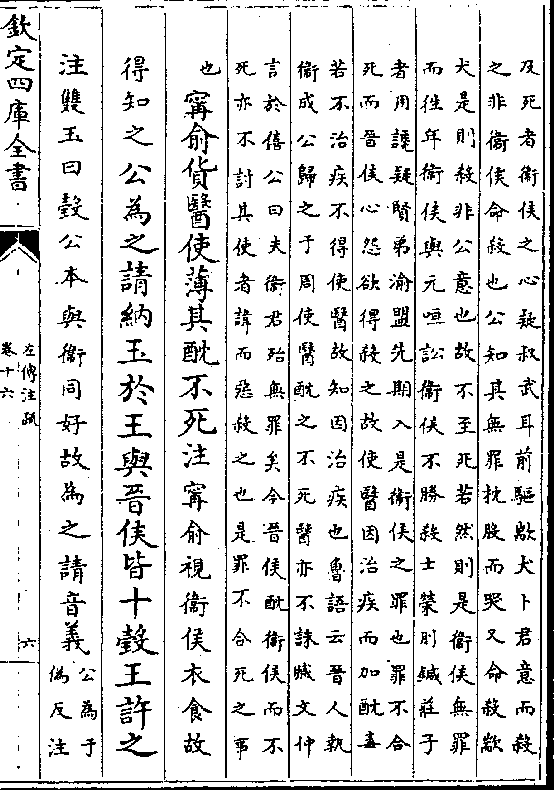 及死者衛侯之心疑叔武耳前驅歂犬卜君意而殺
之非衛侯命殺也公知其無罪枕股而哭又命殺歂
犬是則殺非公意也故不至死若然則是衛侯無罪
而徃年衛侯與元咺訟衛侯不勝殺士榮刖鍼莊子
者用讒疑賢弟渝盟先期入是衛侯之罪也罪不合
死而晉侯心怨欲得殺之故使醫因治疾而加酖毒
若不治疾不得使醫故知因治疾也魯語云晉人執
衛成公歸之于周使醫酖之不死醫亦不誅臧文仲
言於僖公曰夫衛君殆無罪矣今晉侯酖衛侯而不
死亦不討其使者諱而惡殺之也是罪不合死之事
也甯俞貨醫使薄其酖不死注甯俞視衛侯衣食故
得知之公為之請納玉於王與晉侯皆十瑴王許之
注雙玉曰瑴公本與衛同好故為之請音義公為于
偽反注
欽定四庫全書
左傳注疏
卷十六
六